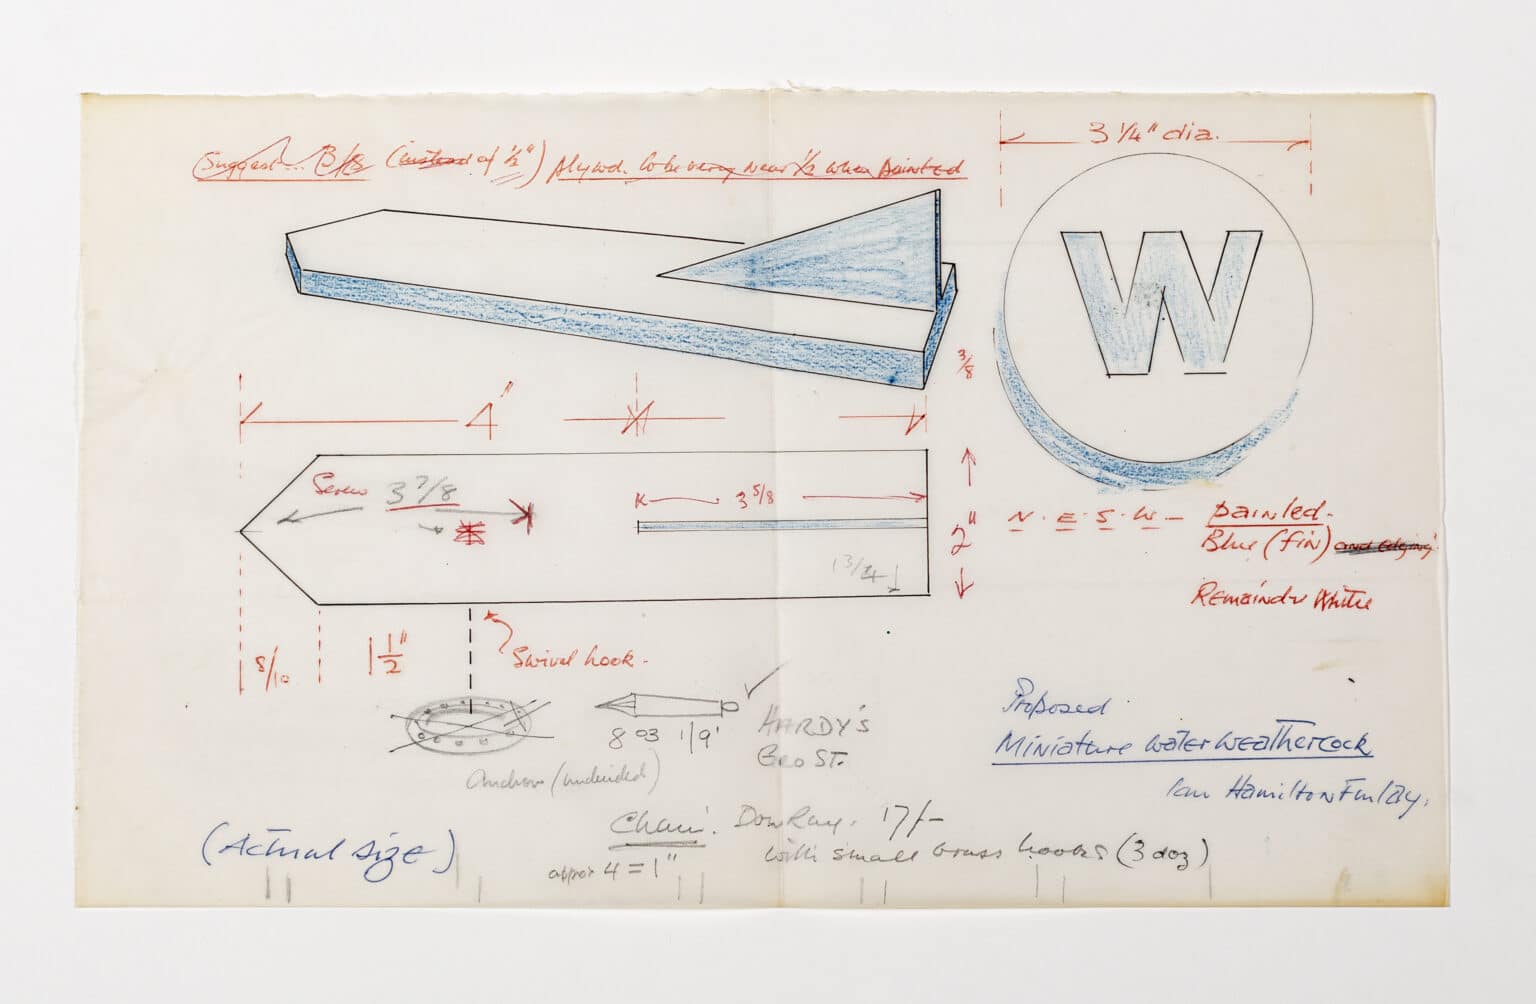 Suggest... 3/8 (instead of ½") plywd. to be very near ½ when painted
3 ¼" dia.
W
3/8
4"
Screw 3 7/8
3 5/8
2"
1 3/4
N. E. S. W - painted.
Blue (fin) and edging
Remainder White
8/10
1 1/2"
Swivel hook.
8 oz 1/9'
HARDY'S
GEO ST.
Anchor (undecided)
Proposed
Miniature water weathercock
Ian Hamilton Finlay.
(Actual size)
Chain. DowRay. 17/-
with small brass hooks (3 doz)
approx 4 = 1"